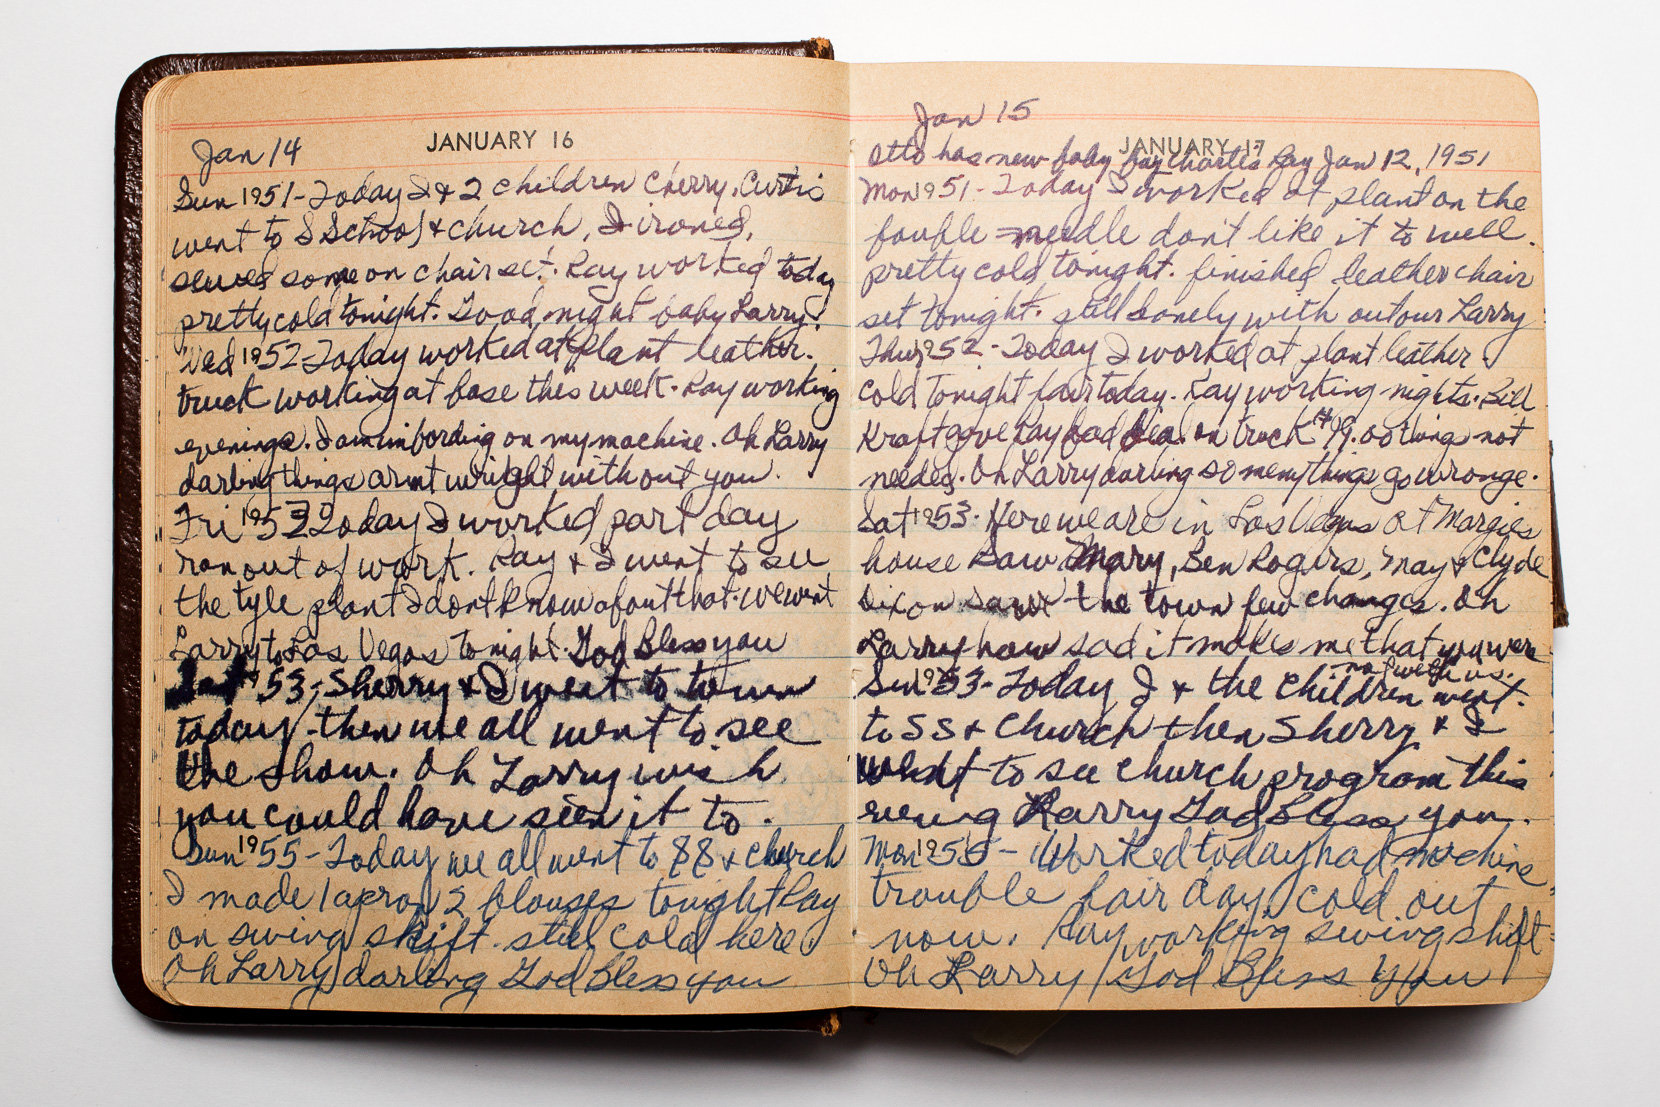 Jan 14
JANUARY 16
Sun 1951 - Today I & 2 children Cherry, Curtis
went to S School & church, I ironed,
sewed some on chair set. Ray worked today
pretty cold tonight. Good night baby Larry.
Wed 1952 Today worked at plant leather.
truck working at base this week. Ray working
evenings. I am imbording on my machine. Oh Larry
darling things arnt wright without you.
Fri 1953 Today I worked part day
ran out of work. Ray & I went to see
the tyle plant I dont know about that. we went
Larry to Las Vegas tonight. God Bless you
53 - Sherry & I went to town
today then we all went to see
the show. Oh Larry wish
you could have seen it to.
Sun 1955 - Today we all went to SS & church
I made 1 apron 2 blouses tonight Ray
on swing shift. still cold here
Oh Larry darling God Bless you
Jan 15
JANUARY 17
Otto has new baby boy Charles Ray Jan 12, 1951
Mon 1951 - Today I worked at plant on the
double needle don't like it to well.
pretty cold tonight. finished leather chair
set tonight. still lonely with out our Larry
Thur 1952 - Today I worked at plant leather.
cold tonight fair today. Ray working nights. Bill
Kraft gave Ray bad deal on truck 00 things not
needed. Oh Larry darling so meny things go wronge.
Sat 1953. Here we are in Las Vegas at Margies
house Saw Mary, Ben Rogers, May & Clyde
Dixon saw the town few changes. Oh
Larry how sad it makes me that you were
not with us.
Sun 1953 - Today I & the children went.
to SS & Church then Sherry & I
went to see church program this
evening Larry God Bless you.
Mon 1955 - Worked today had machine
trouble fair day cold out
now. Ray working swing shift
Oh Larry God Bless you